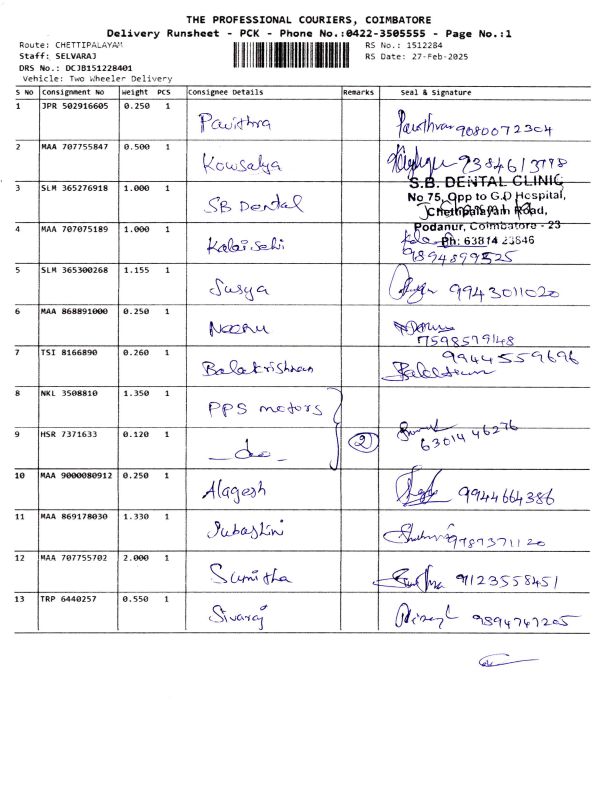 THE PROFESSIONAL COURIERS, COIMBATORE
Delivery Runsheet - PCK - Phone No.:0422-3505555 - Page No.:1
Route: CHETTIPALAYAM
RS No.: 1512284
Staff: SELVARAJ
RS Date: 27-Feb-2025
DRS No.: DCJB151228401
Vehicle: Two Wheeler Delivery
S NO Consignment No Weight PCS Consignee Details Remarks Seal & Signature
1 JPR 502916605 0.250 1 Pavithra 9080072304
2 MAA 707755847 0.500 1 Kowsalya 9384613798
3 SLM 365276918 1.000 1 SB Dental
S.B. DENTAL CLINIC
No 75, Opp to G.D Hospital,
Chettipalayam Road,
Podanur, Coimbatore - 23
Ph: 63814 23846
4 MAA 707075189 1.000 1 Kalaiselvi 9894899525
5 SLM 365300268 1.155 1 Susya 9943011020
6 MAA 868891000 0.250 1 7598579148
7 TSI 8166890 0.260 1 Balakrishnan 9944559696
8 NKL 3508810 1.350 1 PPS motors
9 HSR 7371633 0.120 1 -do- 2 6301446276
10 MAA 9000080912 0.250 1 Alagesh 9944664386
11 MAA 869178030 1.330 1 Subashini 9787371120
12 MAA 707755702 2.000 1 Sumitha 9123558451
13 TRP 6440257 0.550 1 Sivaraj 9894747205